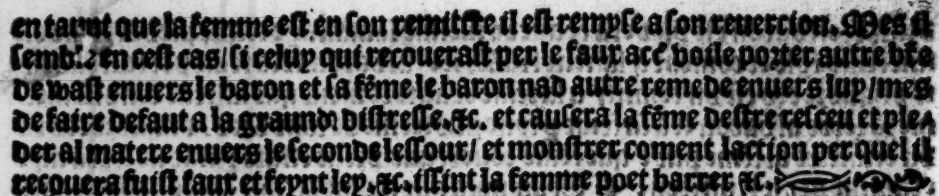 en tant que la femme est en son remitter il est remyse a son reuercion. Mes il
semble en cest cas/ si celuy qui recouerast per le faux acc̃ voile porter autre bře
de wast enuers le baron et sa fẽme le baron nad autre remede enuers luy/mes
de faire defaut a la graund distresse. &c. et causera la fẽme destre resceu et ple⸗
der al matere enuers le second lessour/ et monstrer coment laction per quel il
recouera fuist faux et feynt ley. &c. issint la femme poet barrer &c.